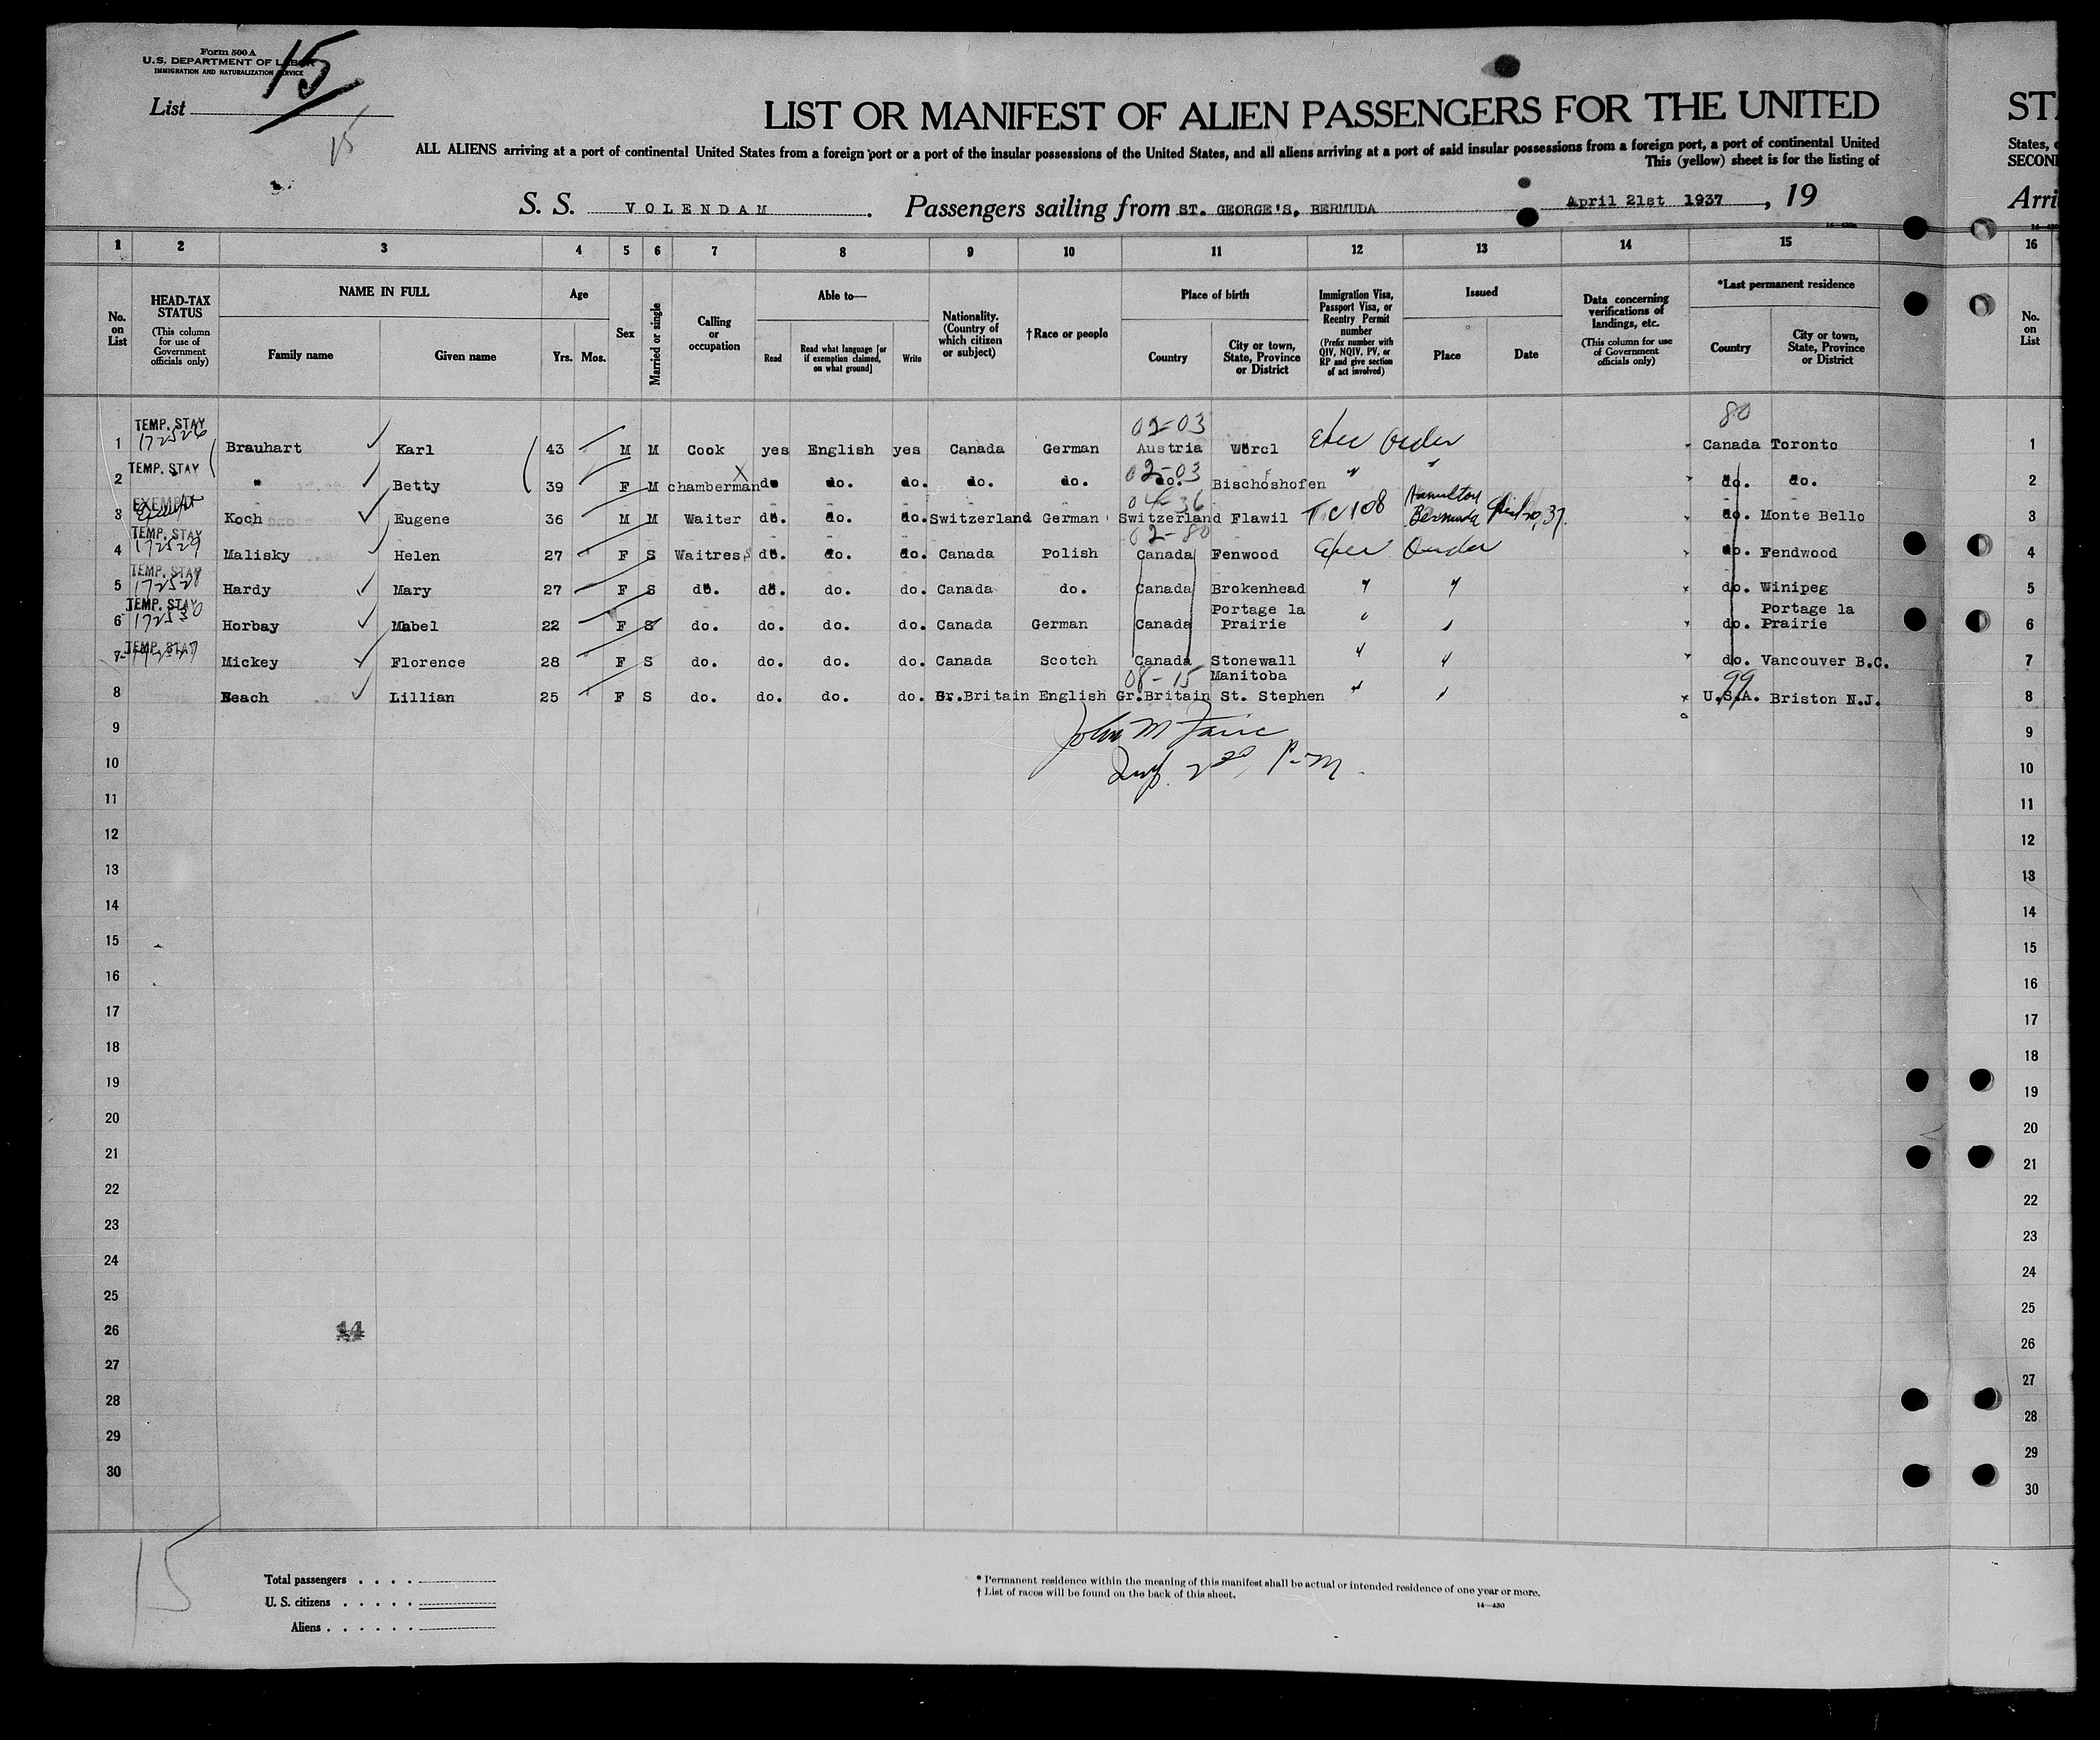 Form 500 A
U.S. DEPARTMENT OF LABOR
IMMIGRATION AND NATURALIZATION SERVICE
List 15
15
LIST OR MANIFEST OF ALIEN PASSENGERS FOR THE UNITED
ALL ALIENS arriving at a port of continental United States from a foreign port or a port of the insular possessions of the United States, and all aliens arriving at a port of said insular possessions from a foreign port, a port of continental United
This (yellow) sheet is for the listing of
S. S. VOLENDAM. Passengers sailing from ST. GEORGE'S, BERMUDA April 21st 1937, 19
ST
States,
SECON
Arri
1 2 3 4 5 6 7 8 9 10 11 12 13 14 15 16
No. on List
HEAD-TAX STATUS
(This column for use of Government officials only)
NAME IN FULL
Family name
Given name
Age
Yrs. Mos.
Sex
Married or single
Calling or occupation
Able to—
Read
Read what language [or if exemption claimed, on what ground]
Write
Nationality. (Country of which citizen or subject)
†Race or people
Place of birth
Country
City or town, State, Province or District
Immigration Visa, Passport Visa, or Reentry Permit number
(Prefix number with QIV, NQIV, PV, or RP and give section of act involved)
Issued
Place
Date
Data concerning verifications of landings, etc.
(This column for use of Government officials only)
*Last permanent residence
Country
City or town, State, Province or District
No. on List
02-03 80
1 TEMP. STAY 172526 Brauhart Karl 43 M M Cook yes English yes Canada German Austria Wörcl Exec Order Canada Toronto 1
02-03
2 TEMP. STAY " Betty 39 F M chamberman do do. do. do. do. do. Bischoshofen " " do. do. 2
04-36
3 EXEMPT Koch Eugene 36 M M Waiter do. do. do. Switzerland German Switzerland Flawil TC 108 Hamilton Bermuda do. Monte Bello 3
02-80
4 TEMP. STAY 172529 Malisky Helen 27 F S Waitress do. do. do. Canada Polish Canada Fenwood Exec Order do. Fendwood 4
5 TEMP. STAY 172528 Hardy Mary 27 F S do. do. do. do. Canada do. Canada Brokenhead " " do. Winipeg 5
6 TEMP. STAY 172530 Horbay Mabel 22 F S do. do. do. do. Canada German Canada Portage la Prairie " " do. Portage la Prairie 6
7 TEMP. STAY Mickey Florence 28 F S do. do. do. do. Canada Scotch Canada Stonewall Manitoba " " do. Vancouver B.C. 7
08-15 99
8 Beach Lillian 25 F S do. do. do. do. Gr.Britain English Gr.Britain St. Stephen " " U.S.A. Briston N.J. 8
9 9
10 10
11 11
12 12
13 13
14 14
15 15
16 16
17 17
18 18
19 19
20 20
21 21
22 22
23 23
24 24
25 25
26 14 26
27 27
28 28
29 29
30 30
15
Total passengers
U. S. citizens
Aliens
* Permanent residence within the meaning of this manifest shall be actual or intended residence of one year or more.
† List of races will be found on the back of this sheet.
14—430